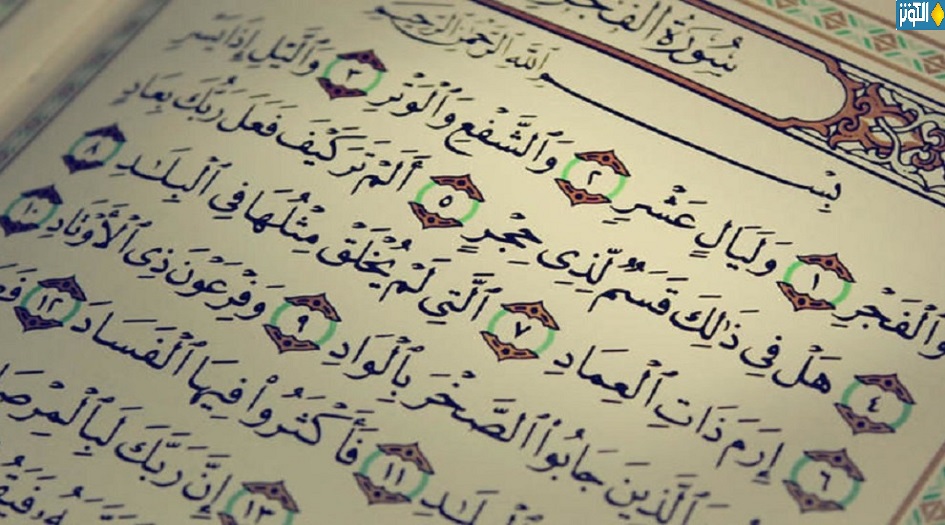 الكوثر
سُورَةُ الفَجْرِ
بِسْمِ ٱللَّهِ ٱلرَّحْمَٰنِ ٱلرَّحِيمِ
وَٱلْفَجْرِ ١ وَلَيَالٍ عَشْرٍ ٢ وَٱلشَّفْعِ وَٱلْوَتْرِ ٣ وَٱلَّيْلِ إِذَا يَسْرِ
٤ هَلْ فِى ذَٰلِكَ قَسَمٌ لِّذِى حِجْرٍ ٥ أَلَمْ تَرَ كَيْفَ فَعَلَ رَبُّكَ بِعَادٍ
٦ إِرَمَ ذَاتِ ٱلْعِمَادِ ٧ ٱلَّتِى لَمْ يُخْلَقْ مِثْلُهَا فِى ٱلْبِلَٰدِ ٨
ٱلَّذِينَ جَابُوا۟ ٱلصَّخْرَ بِٱلْوَادِ ٩ وَفِرْعَوْنَ ذِى ٱلْأَوْتَادِ ١٠
١١ فَأَكْثَرُوا۟ فِيهَا ٱلْفَسَادَ ١٢
١٣ إِنَّ رَبَّكَ